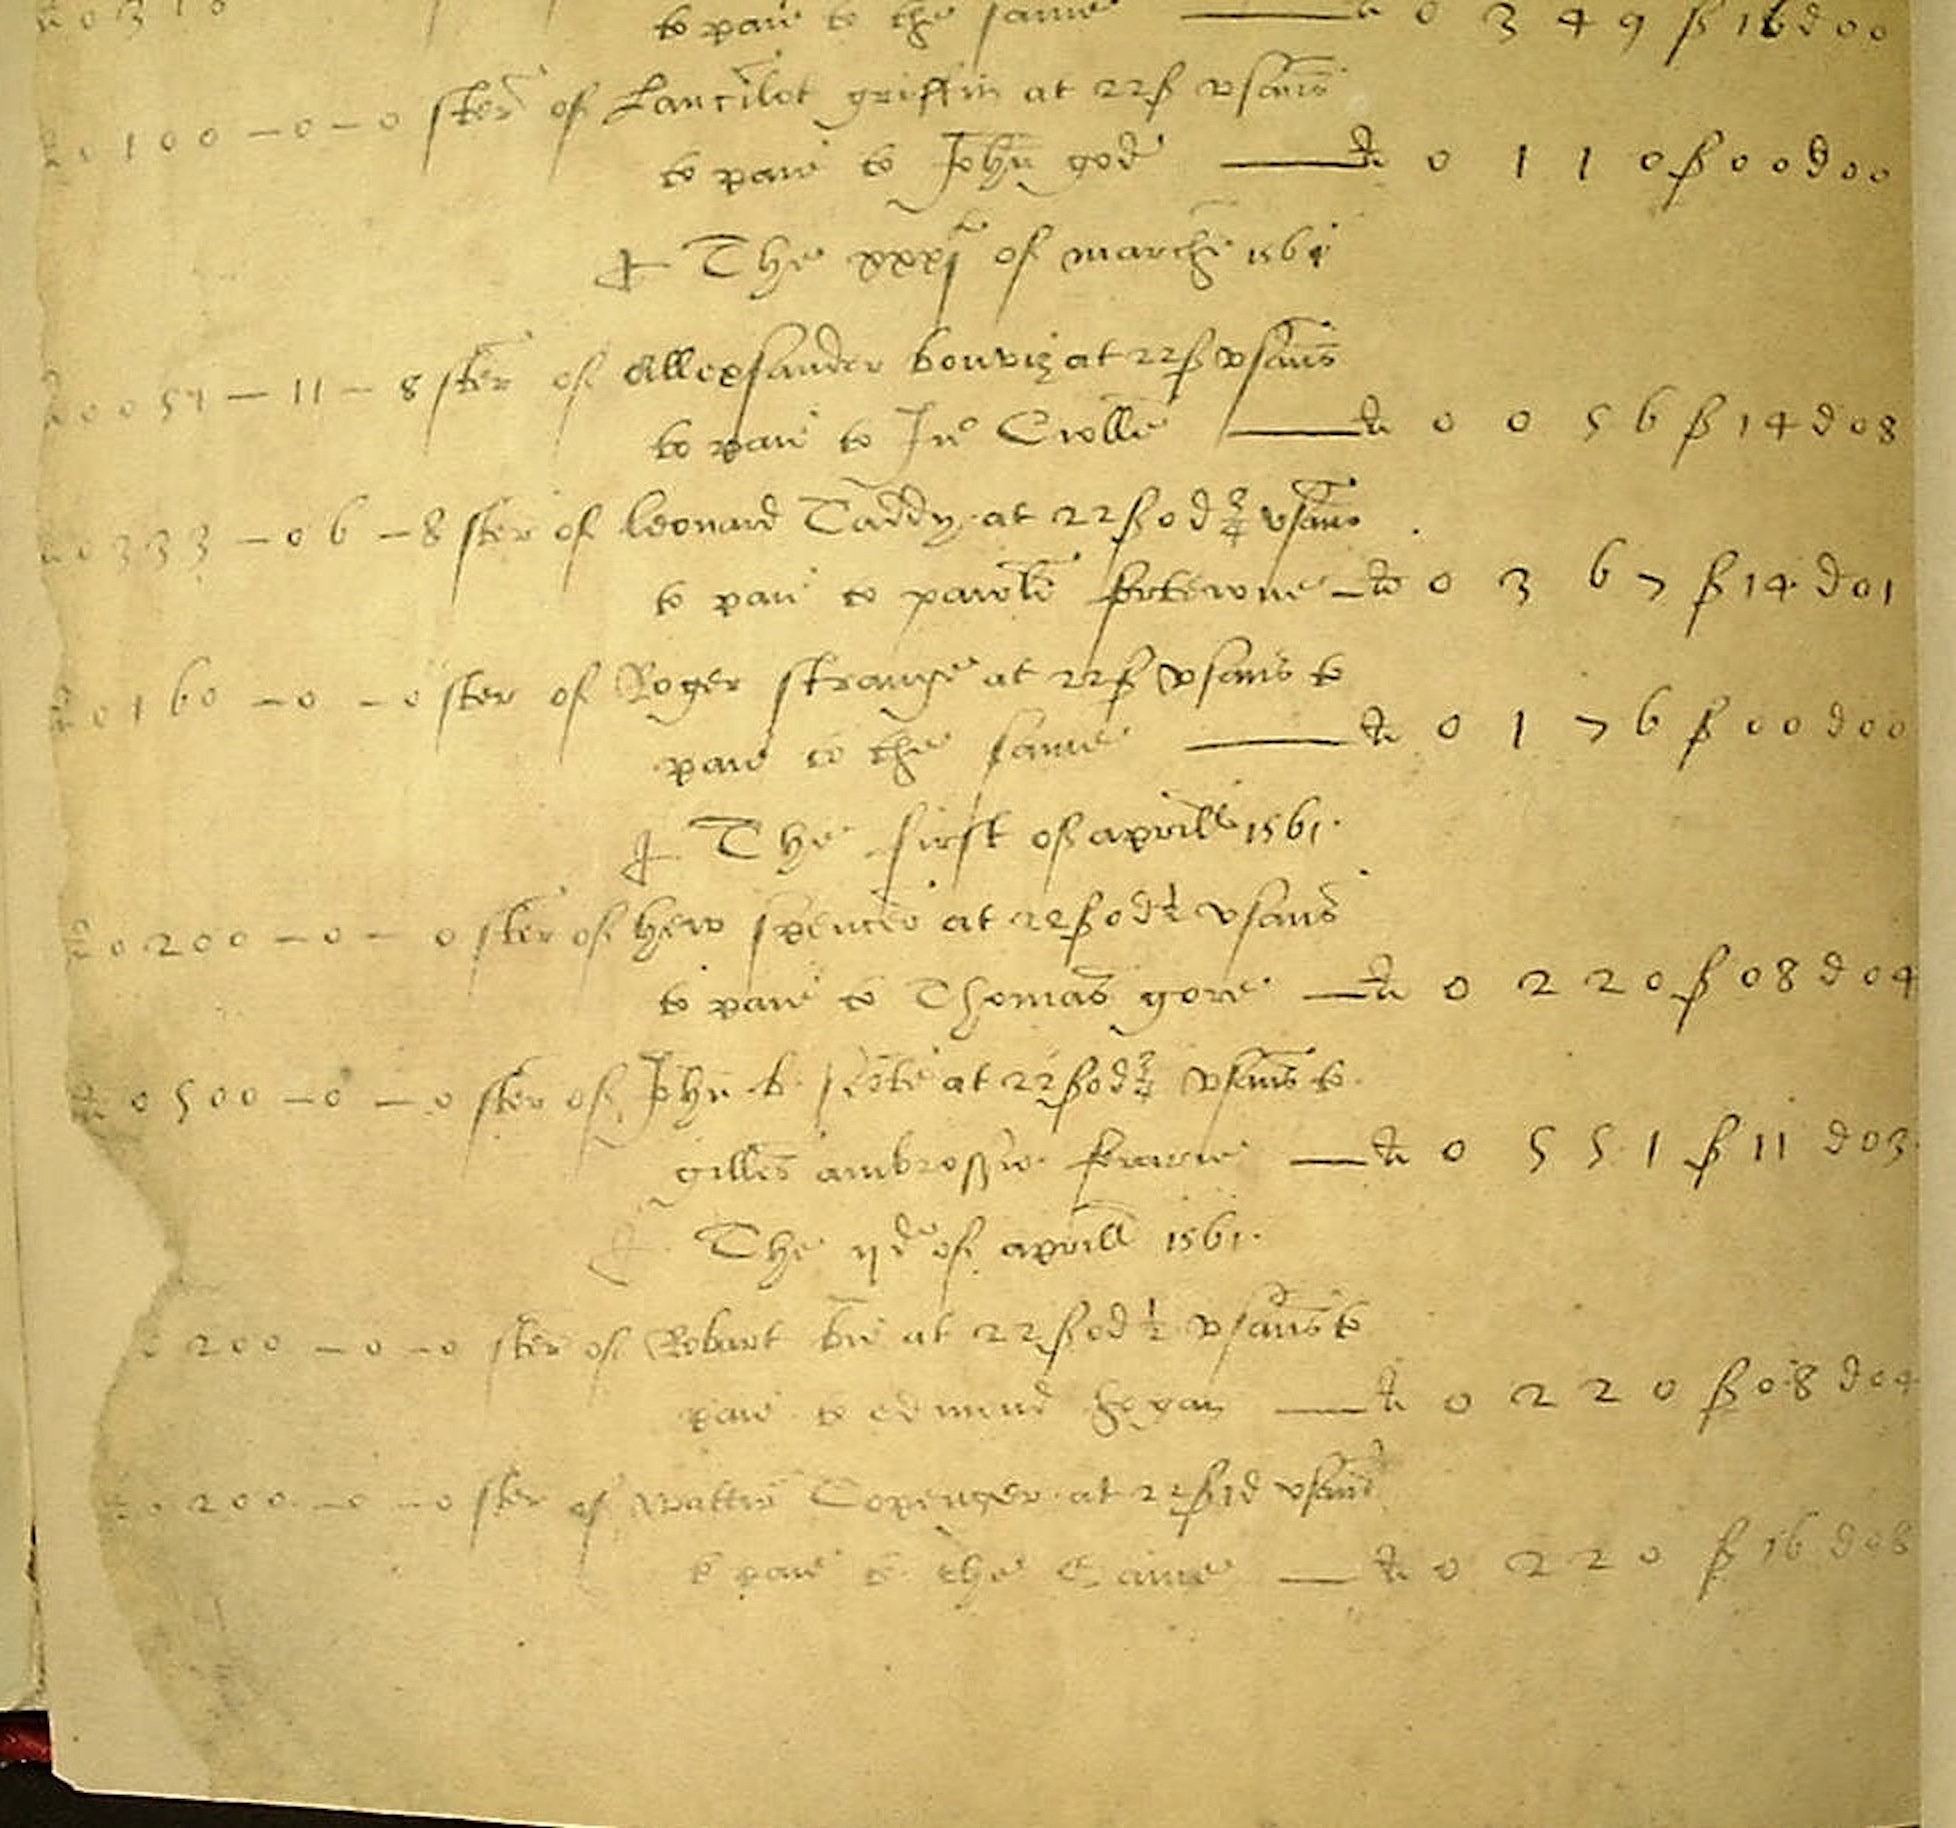 to paie to the same —— £ 0 3 4 9 ß 16 d 00
£ 0100 — 0 — 0 ster of Lancilot griffin at 22ß vsans
to paie to John god —— £ 0 1 1 0 ß 00 d 00
The xxxj of marche 1561
£ 0051 — 11 — 8 ster of Allexsander at 22ß vsans
to paie to Jno —— £ 0 0 5 6 ß 14 d 08
£ 0333 — 06 — 8 ster of leonard Taddy at 22ß 0d ¾ vsans
to paie to — £ 0 3 6 7 ß 14 d 01
£ 0160 — 0 — 0 ster of Roger strange at 22ß vsans to
paie to the same —— £ 0 1 7 6 ß 00 d 00
The first of aprille 1561.
£ 0200 — 0 — 0 ster of hew spencer at 22ß 0d ½ vsans
to paie to Thomas gore — £ 0 2 2 0 ß 08 d 04
£ 0500 — 0 — 0 ster of John at 22ß 0d ¾ vsans to
gilles — £ 0 5 5 1 ß 11 d 03
The ijde of aprill 1561.
200 — 0 — 0 ster of Robart at 22ß 0d ½ vsans to
paie to edmund hogan — £ 0 2 2 0 ß 08 d 04
0200 — 0 — 0 ster of at 22ß 1d vsans
to paie to the Same — £ 0 2 2 0 ß 16 d 08